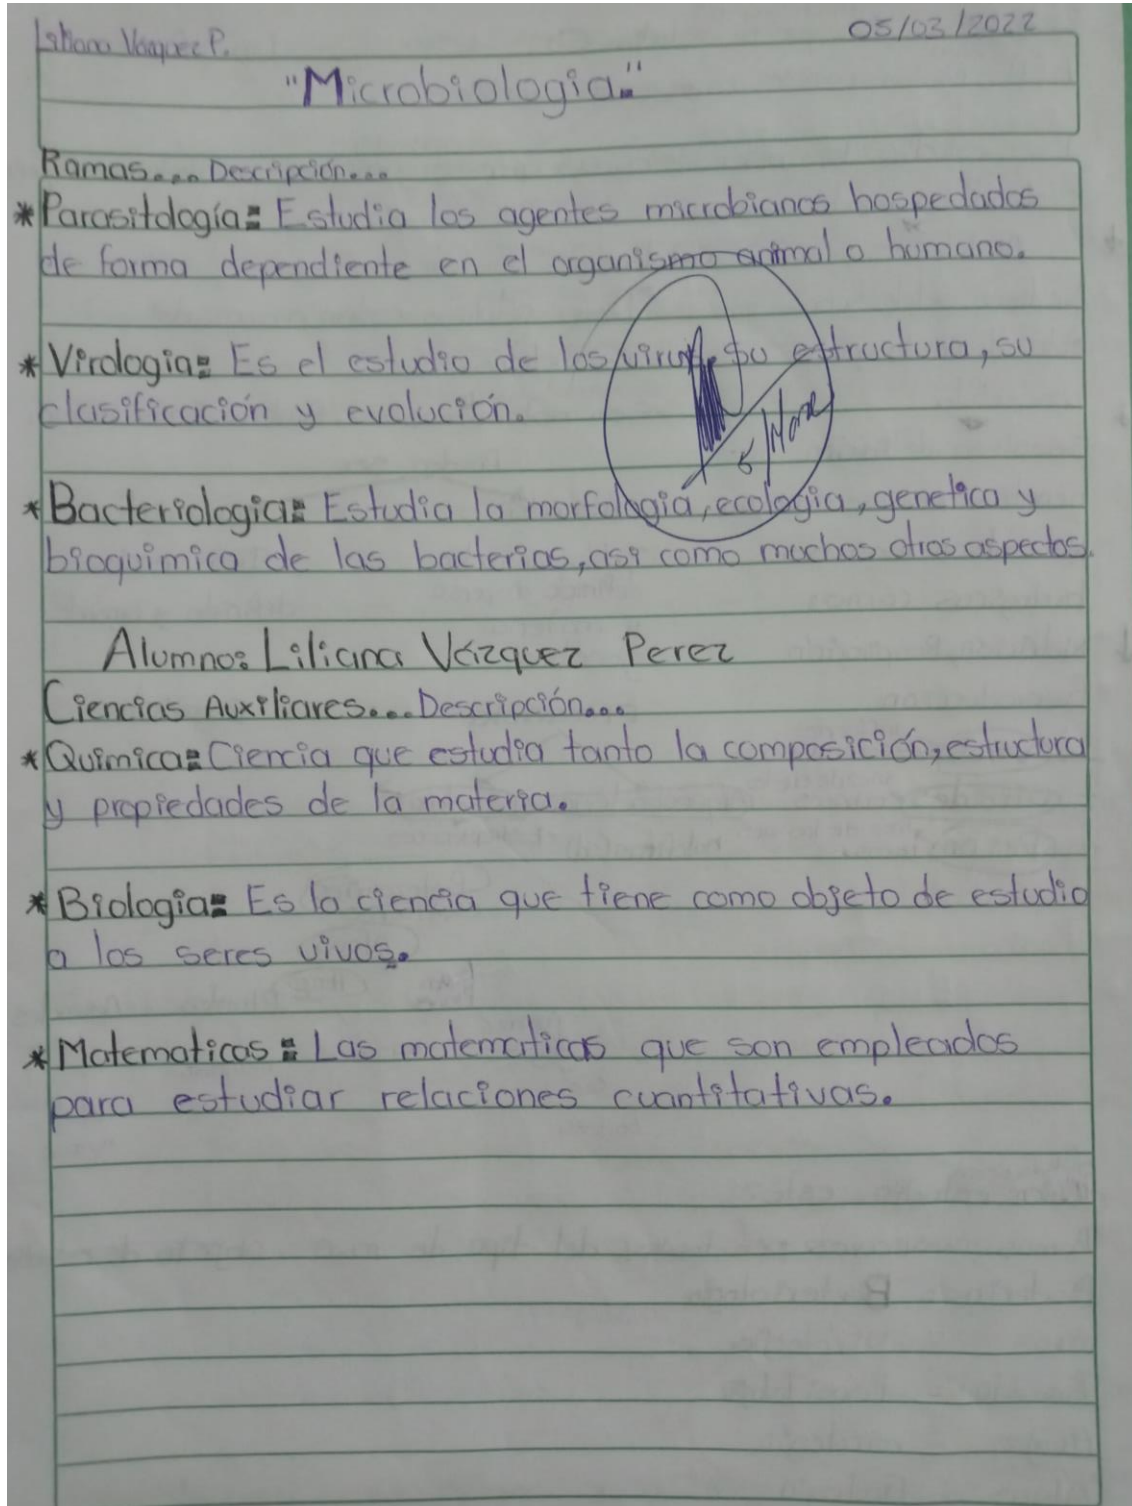 Liliana Vázquez P.
05/03/2022
"Microbiologia."
Ramas... Descripción...
*Parasitología: Estudia los agentes microbianos hospedados
de forma dependiente en el organismo animal o humano.
*Virologia: Es el estudio de los virus, su estructura, su
clasificación y evolución.
*Bacteriologia: Estudia la morfologia, ecologia, genetica y
bioquimica de las bacterias, asi como muchos otros aspectos.
Alumno: Liliana Vázquez Perez
Ciencias Auxiliares... Descripción...
*Quimica: Ciencia que estudia tanto la composición, estructura
y propiedades de la materia.
*Biologia: Es la ciencia que tiene como objeto de estudio
a los seres vivos.
*Matematicas: Las matematicas que son empleados
para estudiar relaciones cuantitativas.